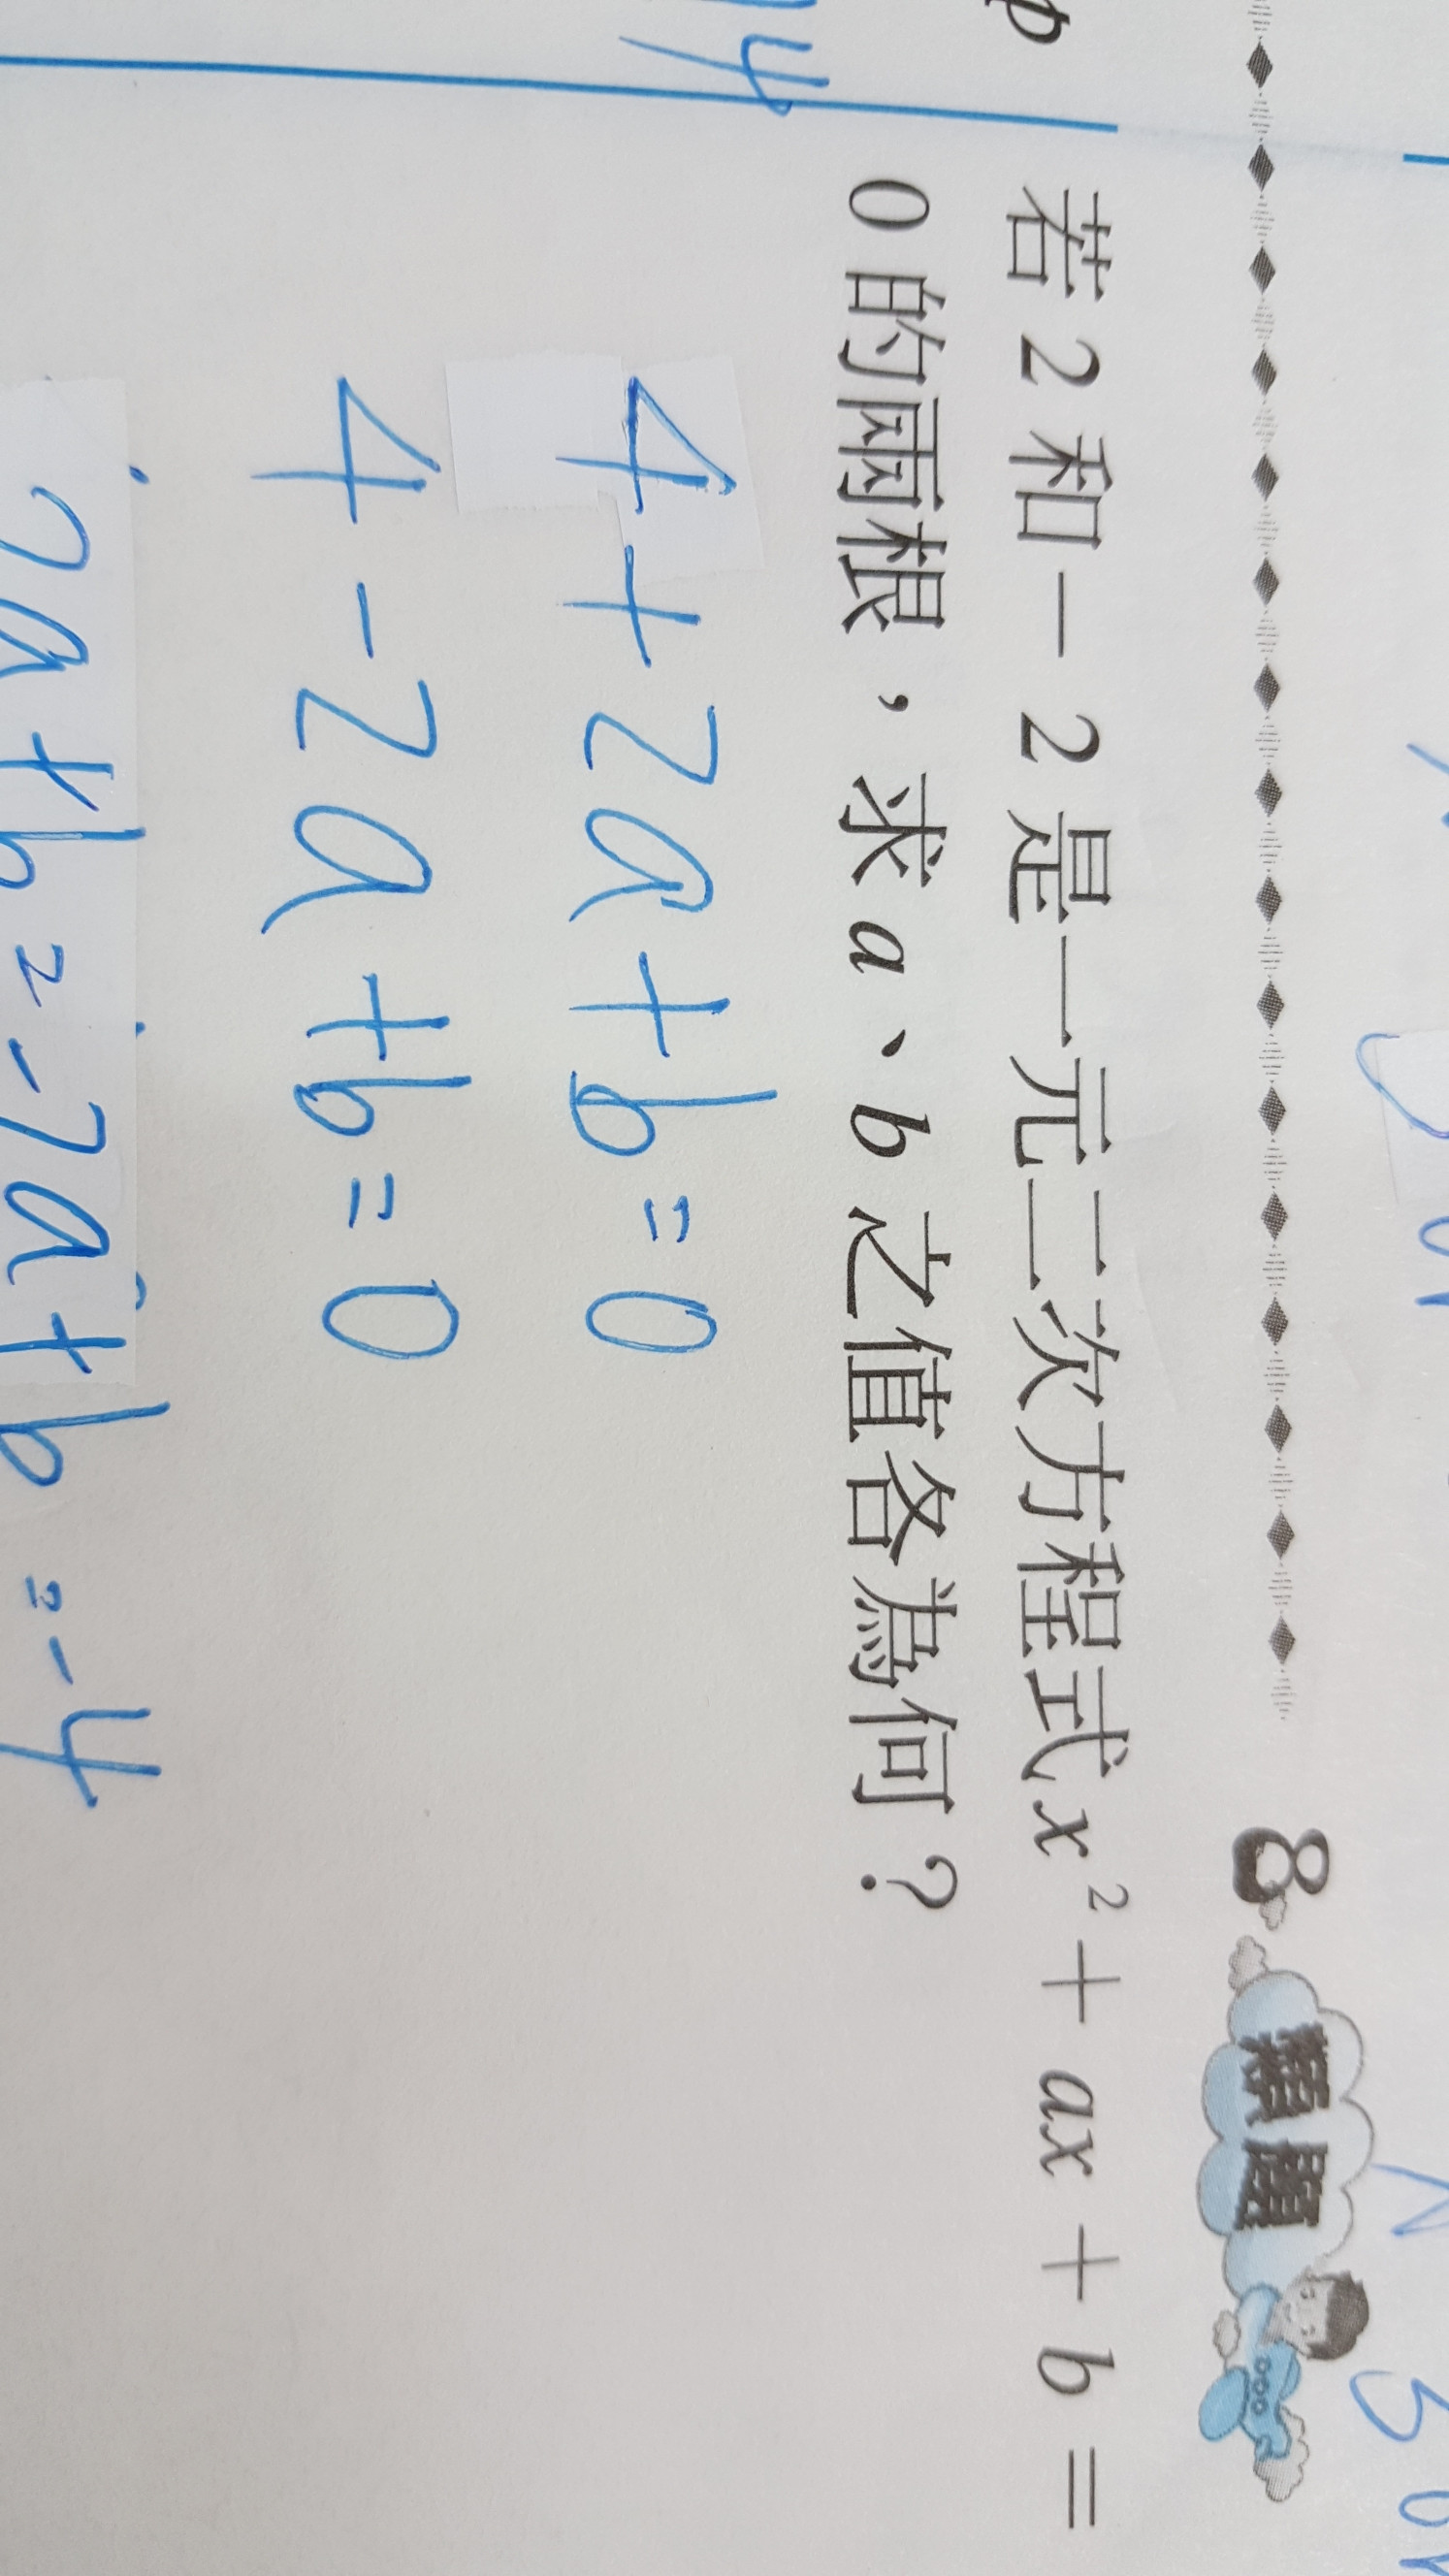 8 類題
若 2 和－2 是一元二次方程式 x² + ax + b =
0 的兩根，求 a、b 之值各為何？
4+2a+b=0
4-2a+b=0
2a+b=-2a+b=-4